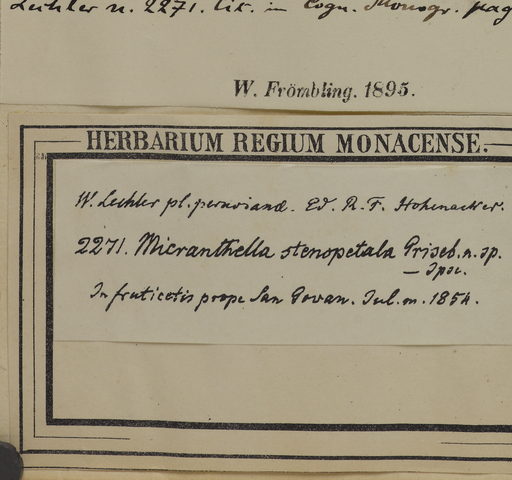 Lechler n. 2271. lit. in Cogn. Monogr. pag
W. Frömbling. 1895.
HERBARIUM REGIUM MONACENSE.
W. Lechler pl. peruvianæ. Ed. R. F. Hohenacker.
2271. Micranthella stenopetala Griseb. n. sp.
— Ipse.
In fruticetis prope San Govan. Jul. m. 1854.